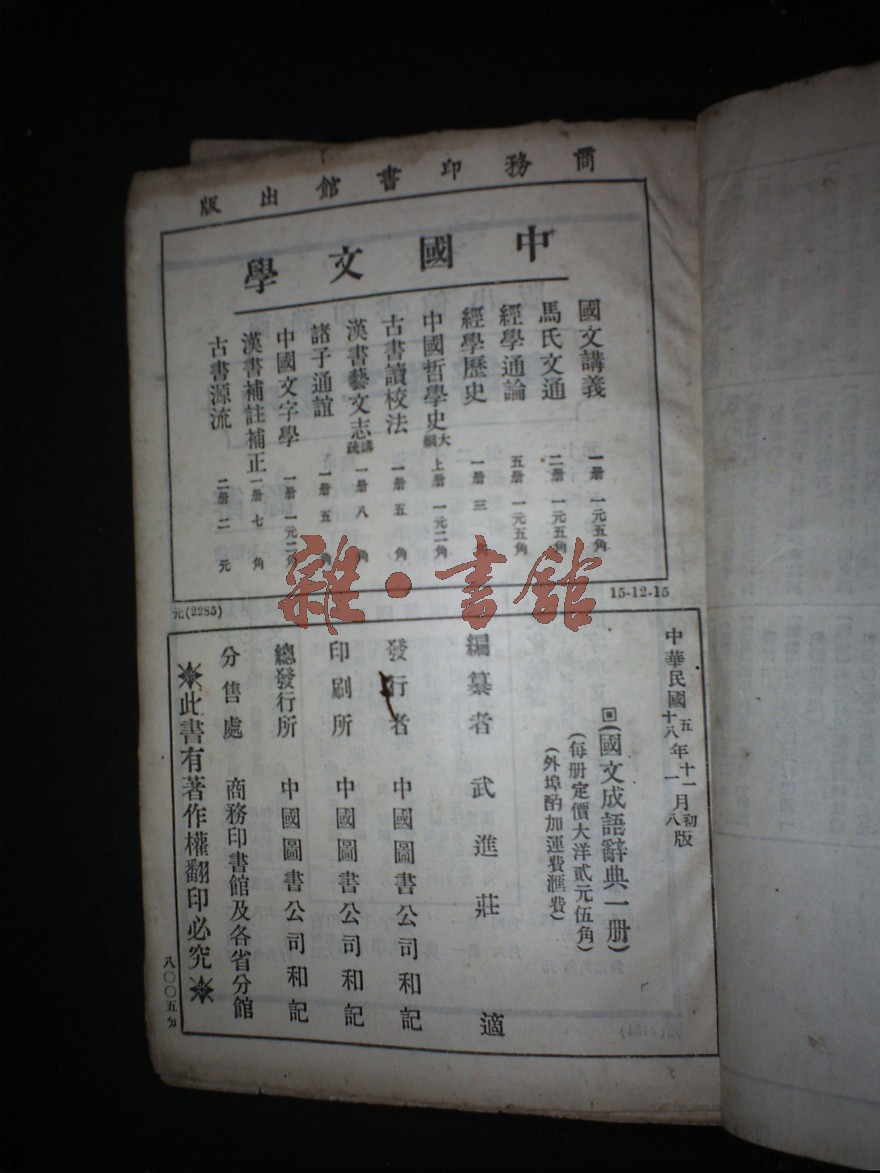 商務印書館出版
中國文學
國文講義 一册 一元五角
馬氏文通 二册 一元五角
經學通論 五册 一元五角
經學歷史 一册 三角
中國哲學史大綱 上册 一元二角
古書讀校法 一册 五角
漢書藝文志講疏 一册 八角
諸子通誼 一册 五角
中國文字學 一册 一元二角
漢書補註補正 一册 七角
古書源流 二册 二元
15-12-15
元(2285)
中華民國
五年十一月初版
十八年一月八版
回(國文成語辭典一册)
(每册定價大洋貳元伍角)
(外埠酌加運費滙費)
編纂者 武進莊適
發行者 中國圖書公司和記
印刷所 中國圖書公司和記
總發行所 中國圖書公司和記
分售處 商務印書館及各省分館
此書有著作權翻印必究
八〇〇五分
雜·書館